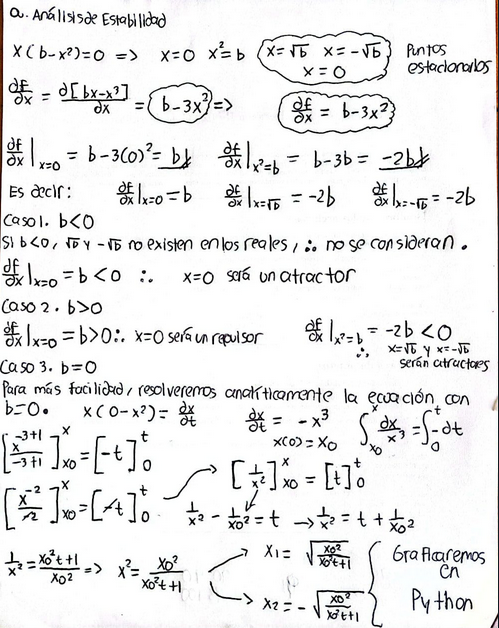 a. Análisis de Estabilidad
x(b-x²)=0 => x=0 x²=b x=√b x=-√b x=0 Puntos estacionarios
∂f/∂x = ∂[bx-x³]/∂x = b-3x² => ∂f/∂x = b-3x²
∂f/∂x|x=0 = b-3(0)² = b ∂f/∂x|x²=b = b-3b = -2b
Es decir: ∂f/∂x|x=0 = b ∂f/∂x|x=√b = -2b ∂f/∂x|x=-√b = -2b
Caso 1. b<0
Si b<0, √b y -√b no existen en los reales, ∴ no se consideran.
∂f/∂x|x=0 = b<0 ∴ x=0 será un atractor
Caso 2. b>0
∂f/∂x|x=0 = b>0 ∴ x=0 será un repulsor ∂f/∂x|x²=b = -2b<0
∴ x=√b y x=-√b
serán atractores
Caso 3. b=0
Para más facilidad, resolveremos analíticamente la ecuación con
b=0. x(0-x²)=∂x/∂t ∂x/∂t = -x³ ∫x0^x ∂x/x³ = ∫0^t -∂t
x(0)=x0
[x^(-3+1)/(-3+1)]x0^x = [-t]0^t
[1/x²]x0^x = [t]0^t
[x^-2/-2]x0^x = [-t]0^t
1/x² - 1/x0² = t → 1/x² = t + 1/x0²
1/x² = (x0²t+1)/x0² => x² = x0²/(x0²t+1)
x1 = √(x0²/(x0²t+1))
x2 = -√(x0²/(x0²t+1))
Graficaremos
en
Python